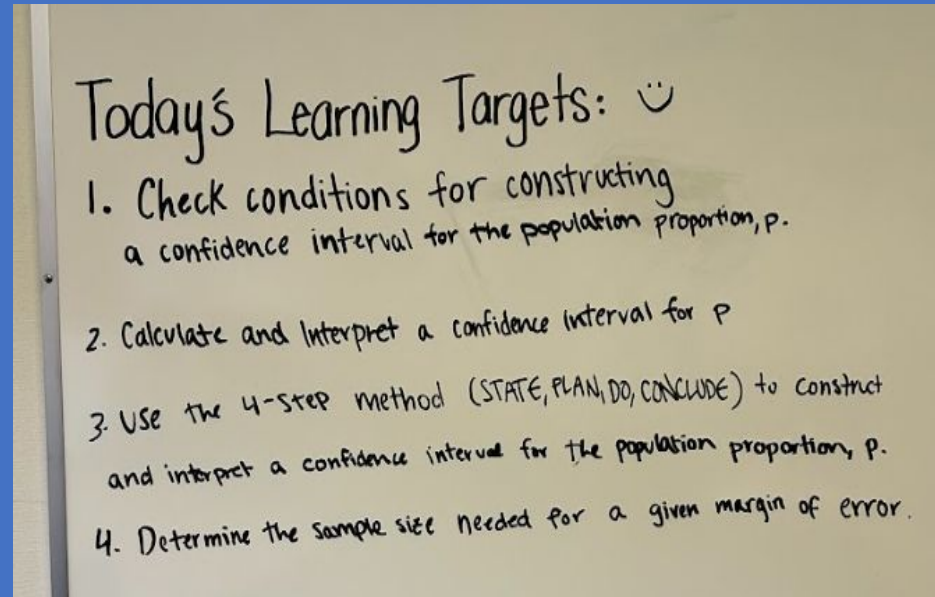 Today's Learning Targets: ☺
1. Check conditions for constructing
a confidence interval for the population proportion, p.
2. Calculate and Interpret a confidence interval for p
3. Use the 4-step method (STATE, PLAN, DO, CONCLUDE) to construct
and interpret a confidence interval for the population proportion, p.
4. Determine the sample size needed for a given margin of error.